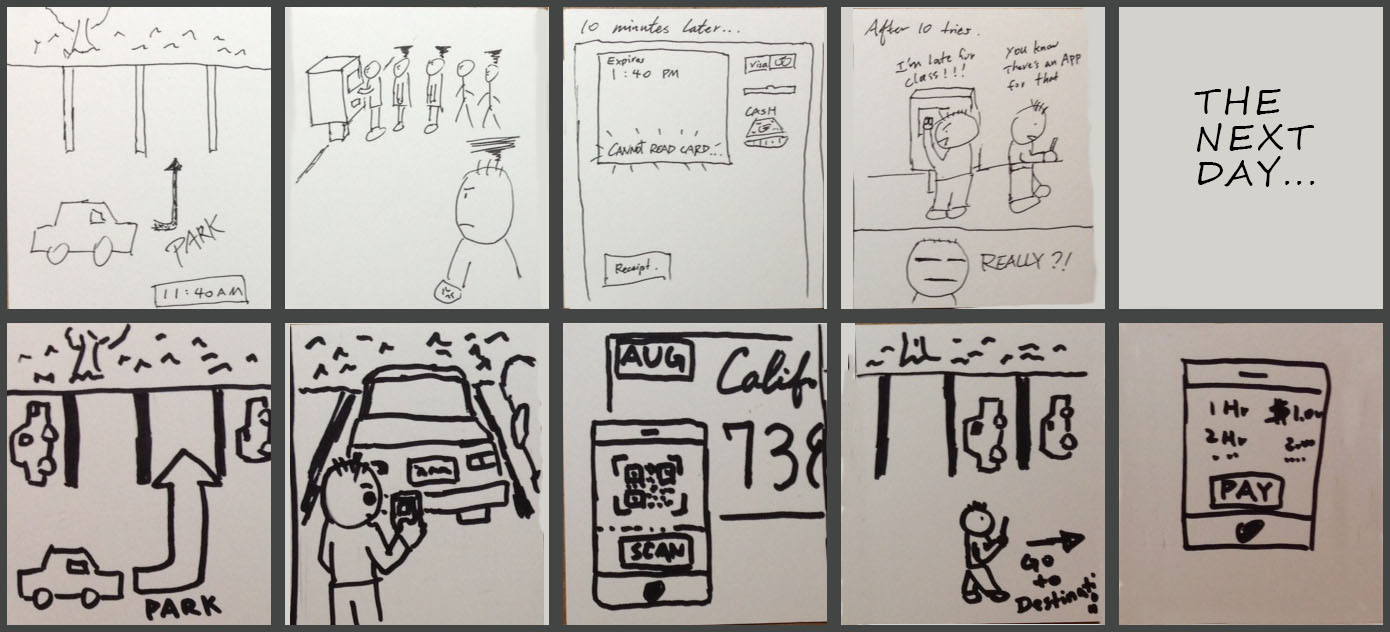 PARK
11:40AM
10 minutes later...
Expires
1:40 PM
VISA
CASH
CANNOT READ CARD...
Receipt.
After 10 tries.
I'm late for
class!!!
you know
There's an App
for that
REALLY?!
THE
NEXT
DAY...
PARK
AUG
Calif
738
SCAN
Go
to
Destination
1 Hr $1.00
2 Hr 2.00
PAY